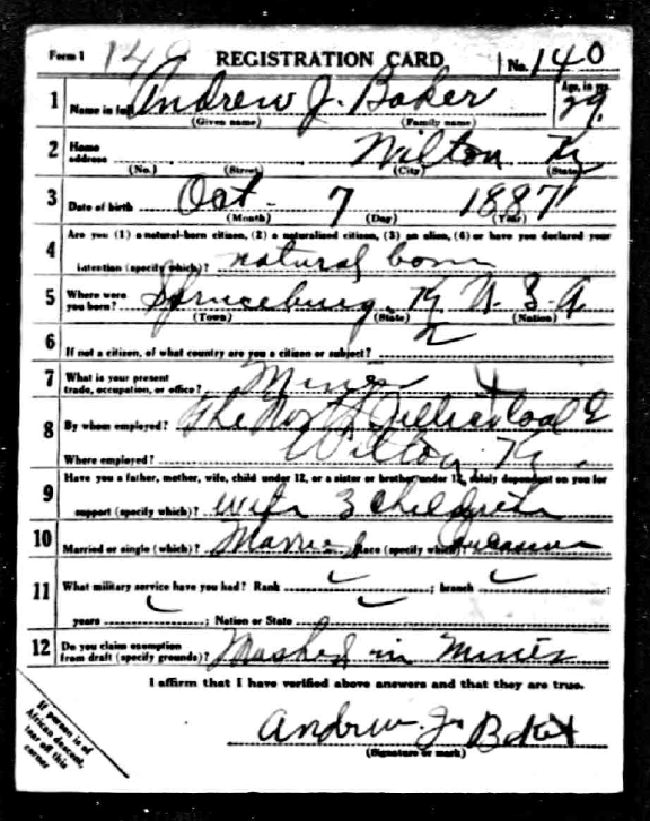 Form 1 149 REGISTRATION CARD No. 140
1 Name in full Andrew J. Baker Age, in yrs. 29
(Given name) (Family name)
2 Home address Wilton Ky
(No.) (Street) (City) (State)
3 Date of birth Oct. 7 1887
(Month) (Day) (Year)
4 Are you (1) a natural-born citizen, (2) a naturalized citizen, (3) an alien, (4) or have you declared your
intention (specify which)? natural born
5 Where were you born? Ky U. S. A
(Town) (State) (Nation)
6 If not a citizen, of what country are you a citizen or subject?
7 What is your present trade, occupation, or office? Miner
8 By whom employed? The North Jellico Coal
Where employed? Wilton, Ky.
9 Have you a father, mother, wife, child under 12, or a sister or brother under 12, solely dependent on you for
support (specify which)? wife 3 children
10 Married or single (which)? Married Race (specify which)? Caucasian
11 What military service have you had? Rank ; branch ;
years ; Nation or State
12 Do you claim exemption from draft (specify grounds)? Mashed in Mines
I affirm that I have verified above answers and that they are true.
Andrew J. Baker
(Signature or mark)
If person is of
African descent,
tear off this
corner